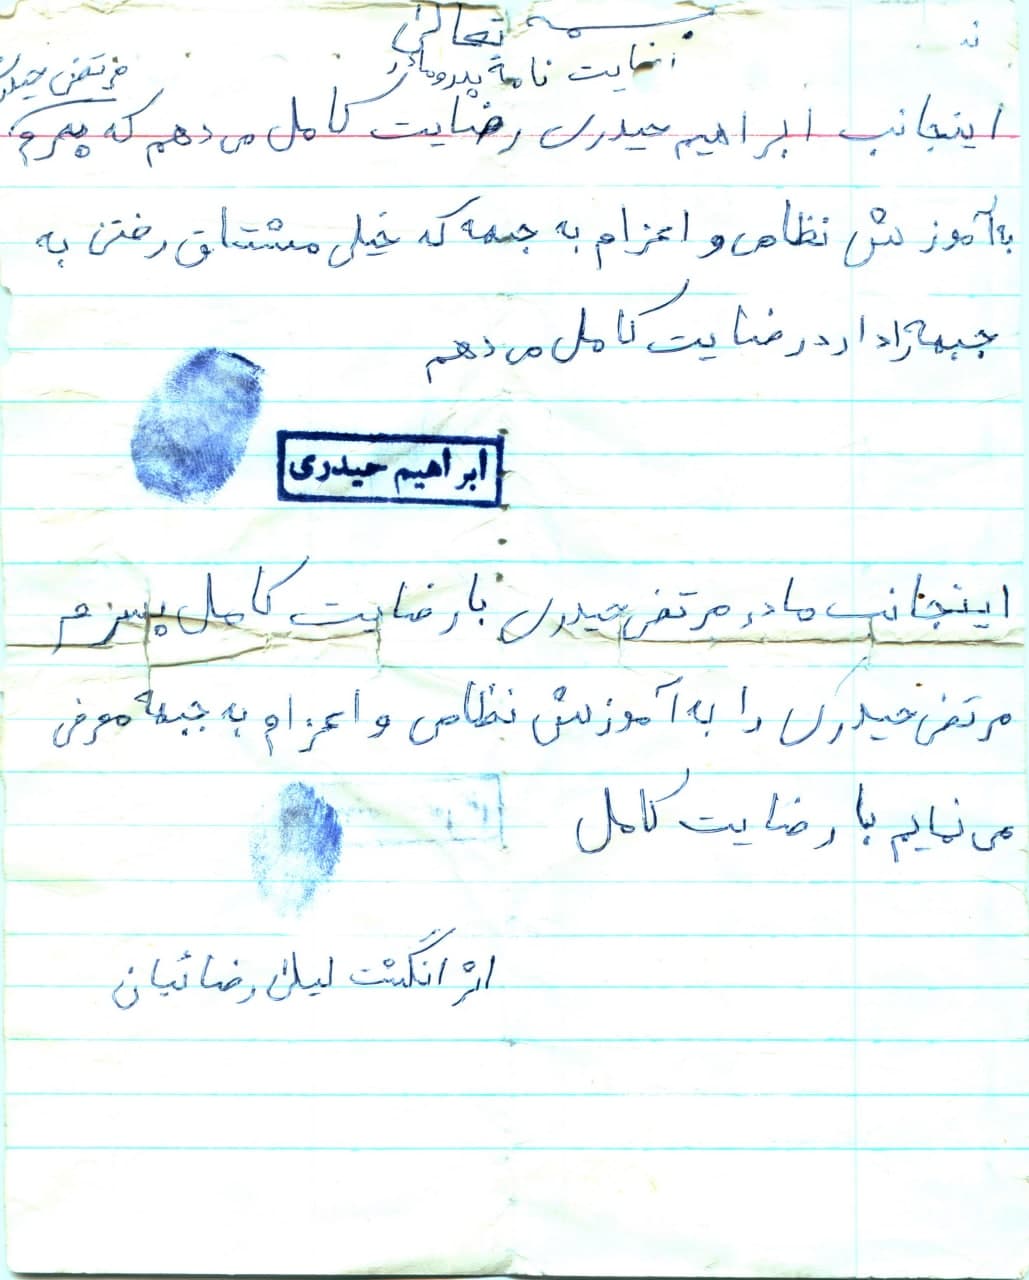 بسمه تعالی
رضایت نامه پدر و مادر
مرتضی حیدری
اینجانب ابراهیم حیدری رضایت کامل می دهم که پسرم
به آموزش نظامی و اعزام به جبهه که خیلی مشتاق رفتن به
جبهه را دارد رضایت کامل می دهم
ابراهیم حیدری
اینجانب مادر مرتضی حیدری با رضایت کامل پسرم
مرتضی حیدری را به آموزش نظامی و اعزام به جبهه معرفی
می نمایم با رضایت کامل
اثر انگشت لیلی رضائیان